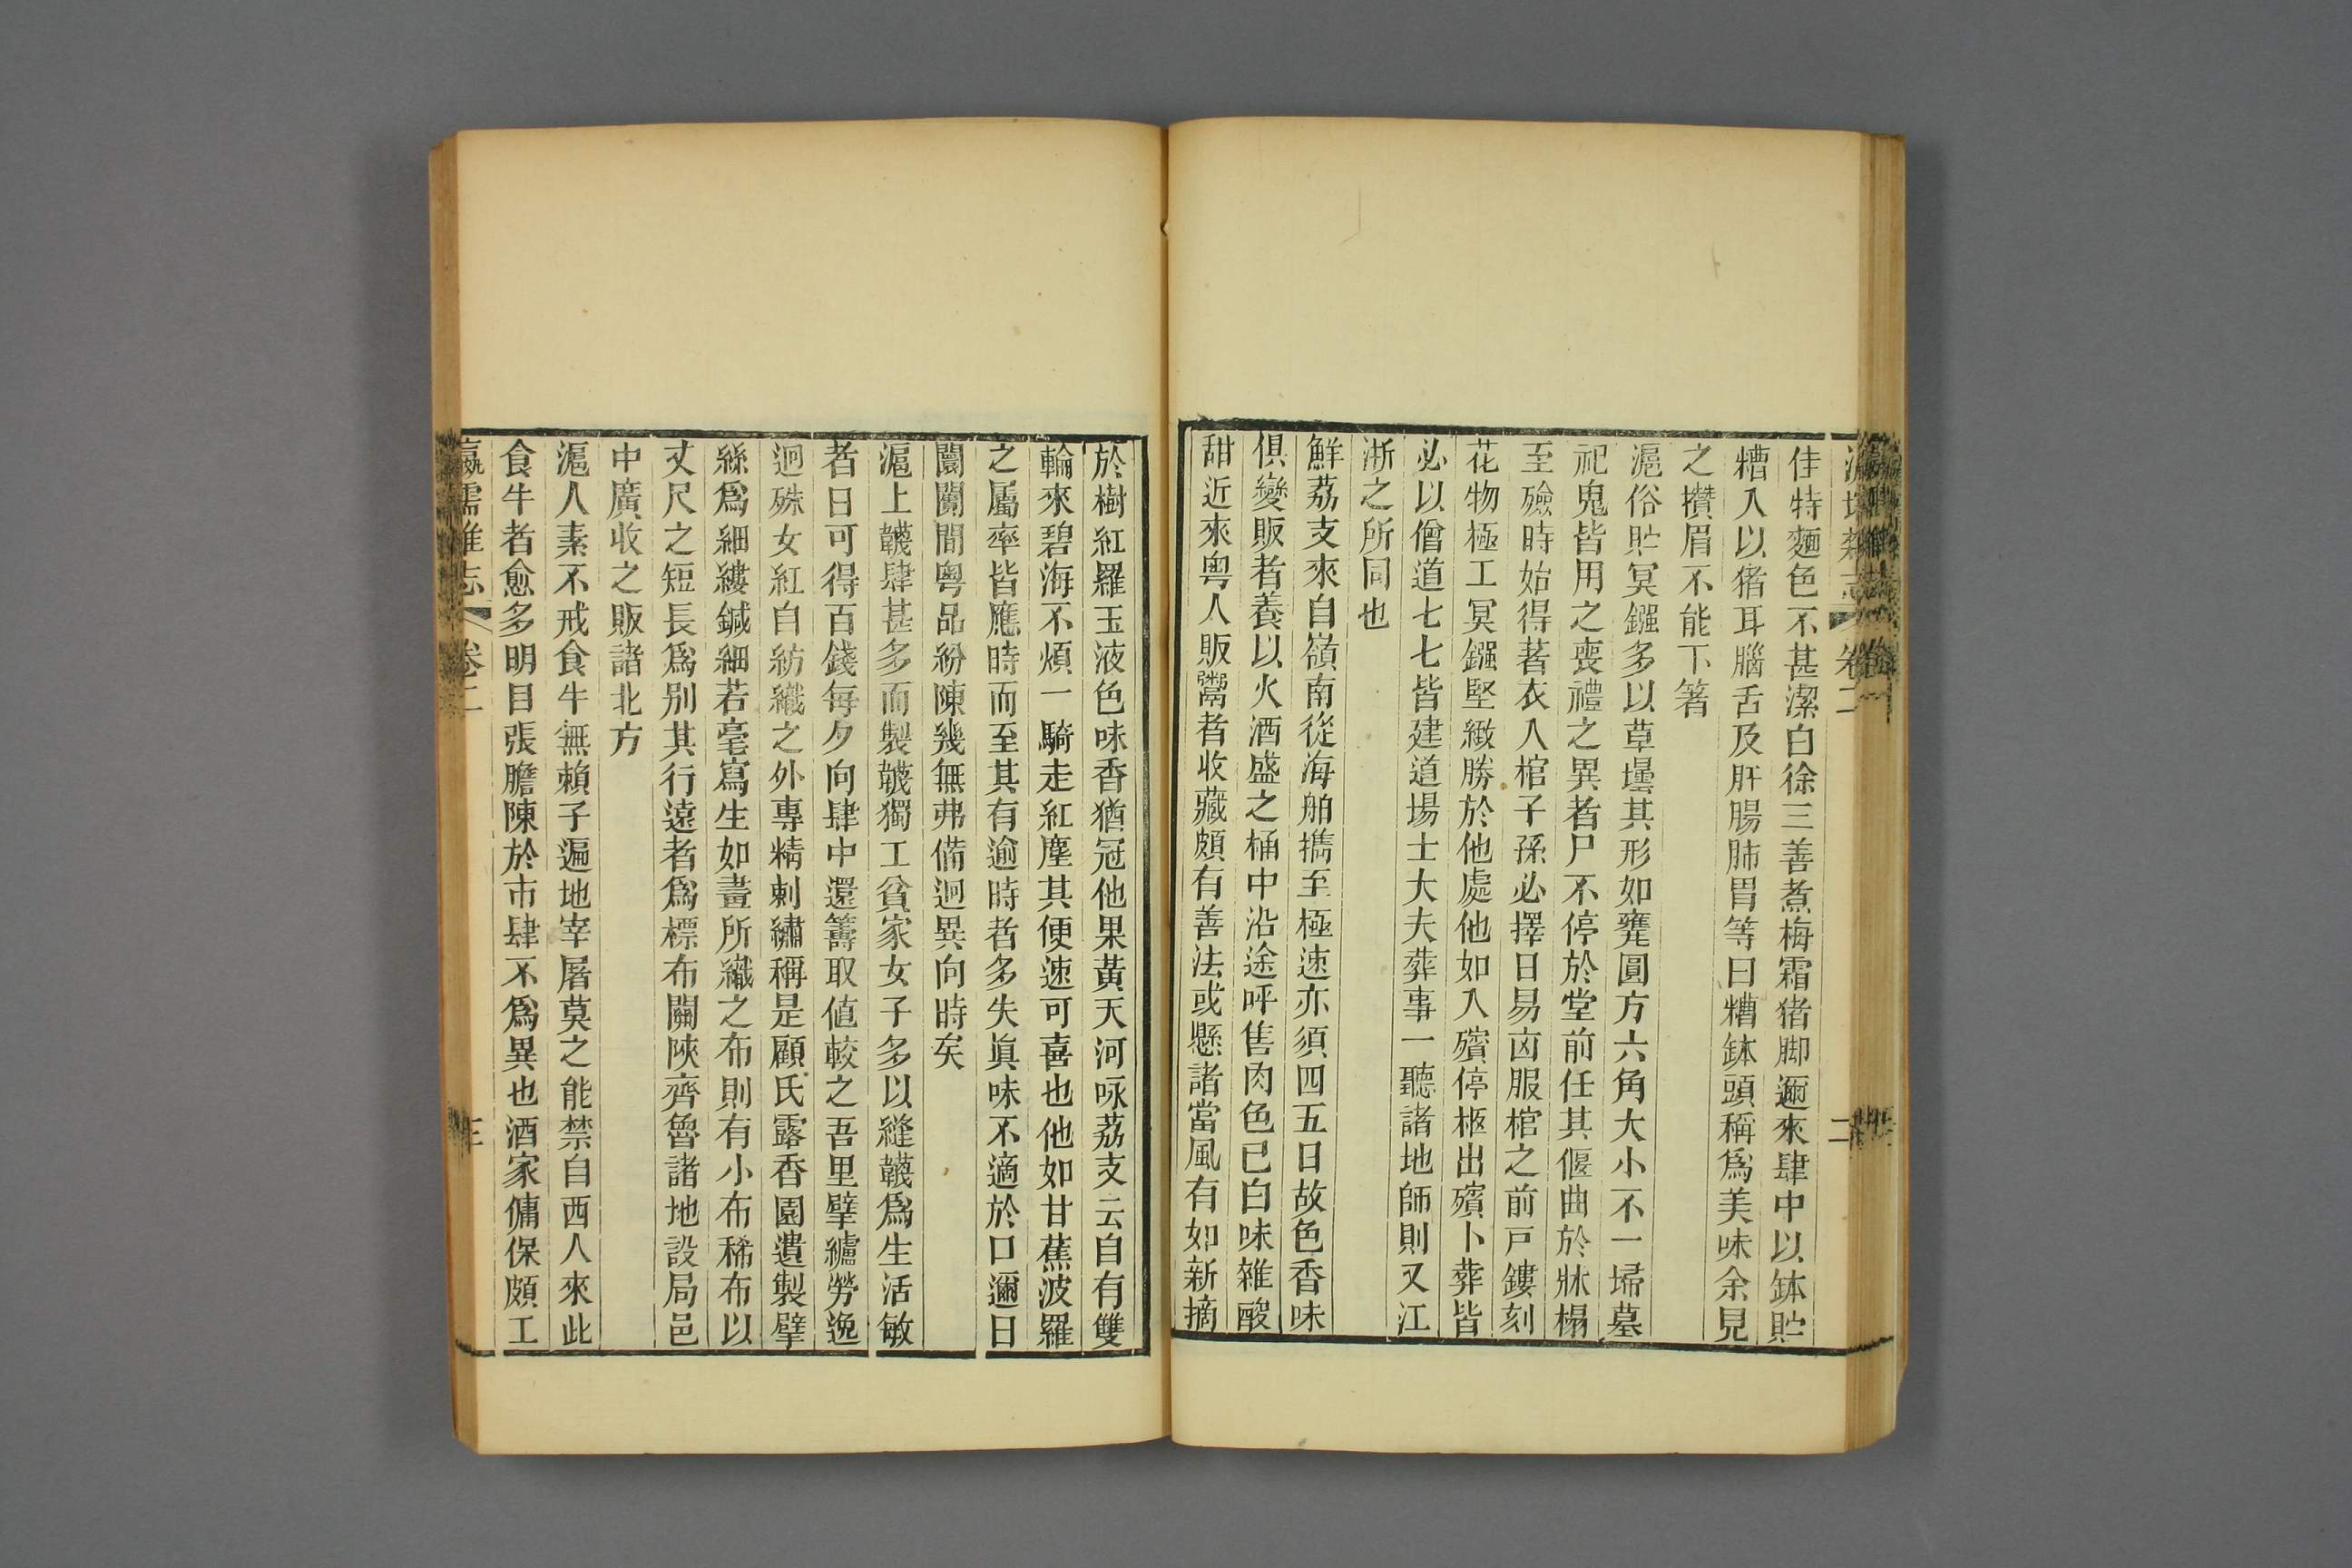 卷二
二
佳特麵色不甚潔白徐三善煮梅霜猪脚邇來肆中以缽貯
糟入以猪耳腦舌及肝腸肺胃等曰糟缽頭稱爲美味余見
之攢眉不能下箸
滬俗貯冥鏹多以草壜其形如甕圓方六角大小不一埽墓
祀鬼皆用之喪禮之異者尸不停於堂前任其偃曲於牀榻
至殮時始得著衣入棺子孫必擇日易凶服棺之前戸鏤刻
花物極工冥鏹堅緻勝於他處他如入殯停柩出殯卜葬皆
必以僧道七七皆建道場士大夫葬事一聽諸地師則又江
淅之所同也
鮮荔支來自嶺南從海舶攜至極速亦須四五日故色香味
俱變販者養以火酒盛之桶中沿途呼售肉色已白味雜酸
甜近來粤人販鬻者收藏頗有善法或懸諸當風有如新摘
於樹紅羅玉液色味香猶冠他果黃天河咏荔支云自有雙
輪來碧海不煩一騎走紅塵其便速可喜也他如甘蕉波羅
之屬率皆應時而至其有逾時者多失眞味不適於口邇日
闤闠間粤品紛陳幾無弗備迥異向時矣
滬上韈肆甚多而製韈獨工貧家女子多以縫韈爲生活敏
者日可得百錢每夕向肆中還籌取値較之吾里擘纑勞逸
迥殊女紅自紡織之外專精刺繡稱是顧氏露香園遺製擘
絲爲細縷鍼細若毫寫生如畫所織之布則有小布稀布以
丈尺之短長爲别其行遠者爲標布關陜齊魯諸地設局邑
中廣收之販諸北方
滬人素不戒食牛無賴子遍地宰屠莫之能禁自西人來此
食牛者愈多明目張膽陳於市肆不爲異也酒家傭保頗工
瀛壖雜志 卷二
三